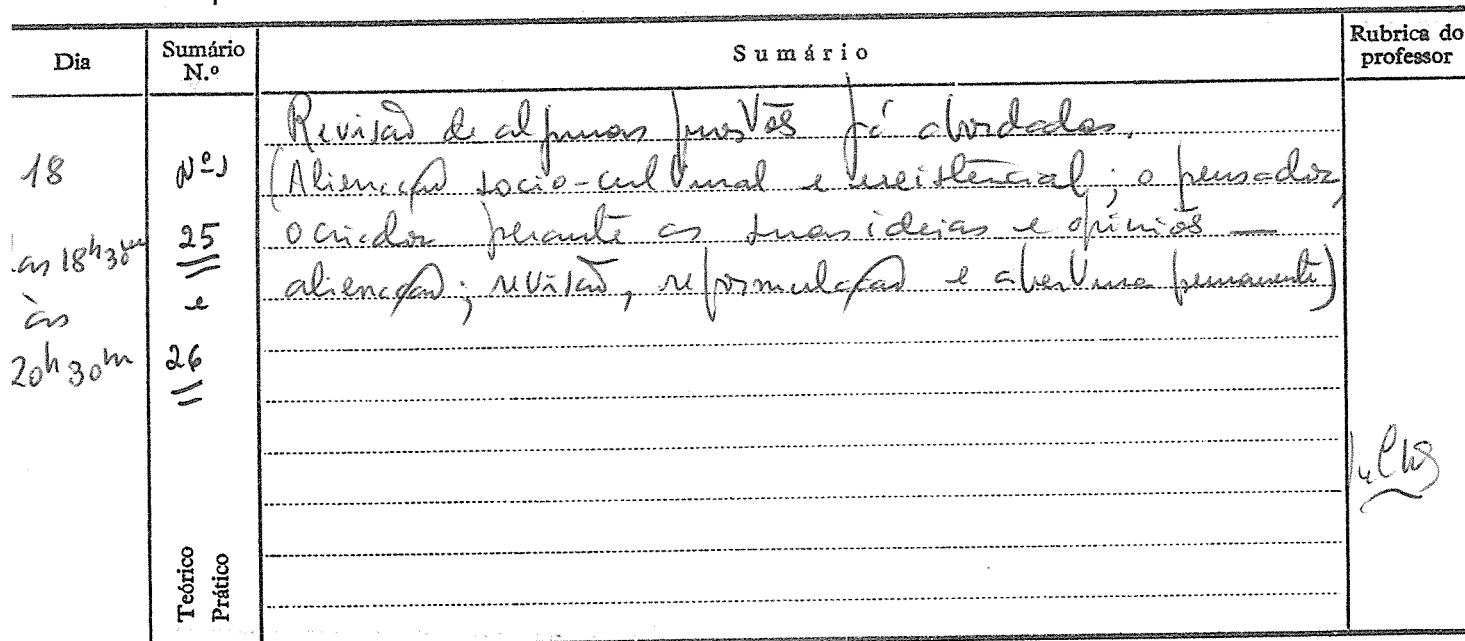 Dia
Sumário N.º
Sumário
Rubrica do professor
18
às 18h30m
às
20h30m
Nºs
25
e
26
Revisão de algumas questões já abordadas.
(Alienação socio-cultural e existencial; o pensador,
o criador perante as suas ideias e opiniões —
alienação; revisão, reformulação e abertura permanente)
Teórico
Prático